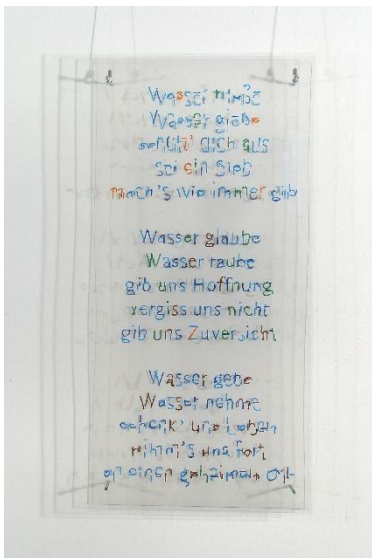 Wasser nimmt
Wasser gibt
schütt' dich aus
sei ein Sieb
mach's wie immer gib
Wasser glaube
Wasser raube
gib uns Hoffnung
vergiss uns nicht
gib uns Zuversicht
Wasser gebe
Wasser nehme
schenk' uns Leben
nimm's uns fort
an einen geheimen Ort